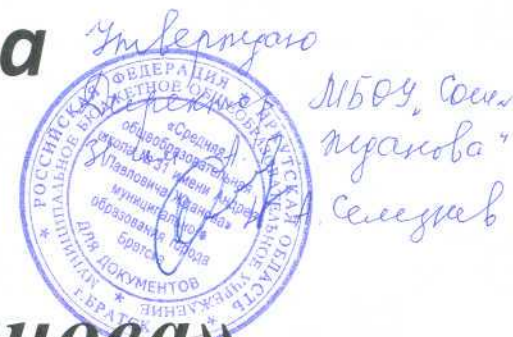 а
Утверждаю
Директор МБОУ „СОШ
Жданова"
А. Селезнев
* РОССИЙСКАЯ ФЕДЕРАЦИЯ * ИРКУТСКАЯ ОБЛАСТЬ *
МУНИЦИПАЛЬНОЕ БЮДЖЕТНОЕ ОБЩЕОБРАЗОВАТЕЛЬНОЕ УЧРЕЖДЕНИЕ
«Средняя
общеобразовательная
школа №31 имени Андрея
Павловича Жданова»
муниципального
образования города
Братска
ДЛЯ ДОКУМЕНТОВ
г. БРАТСК
нова»